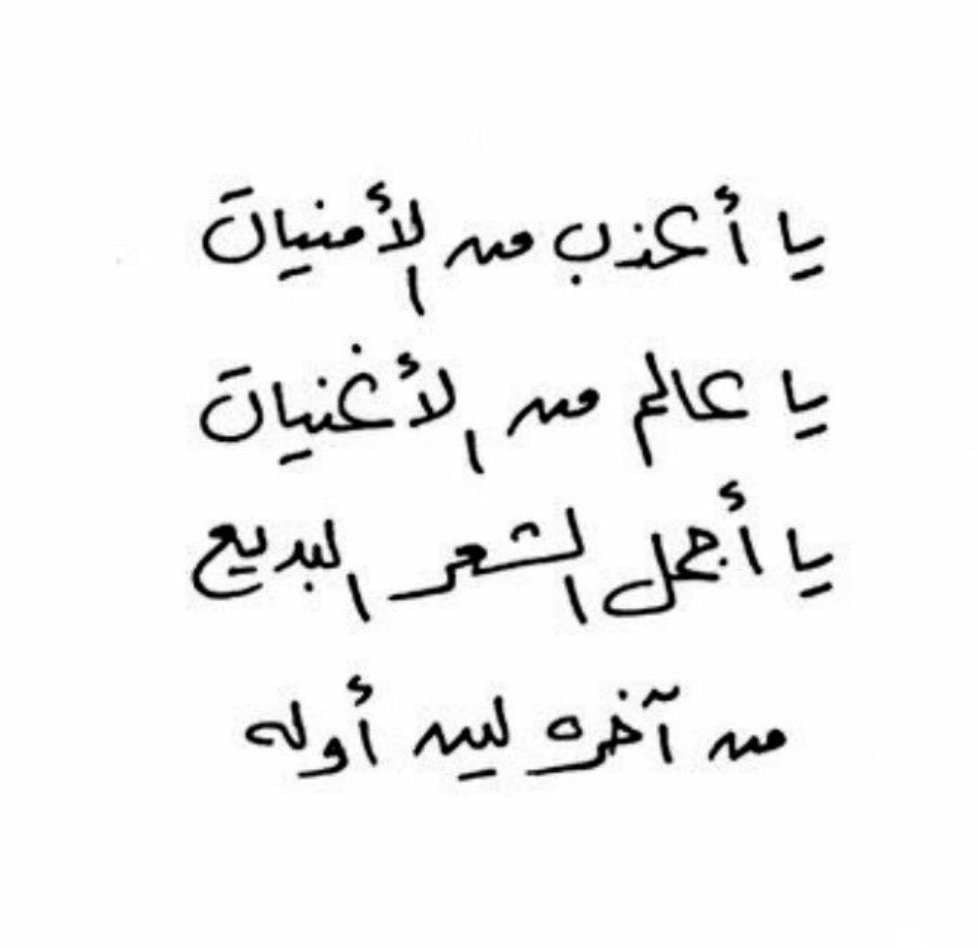 يا أعذب من الأمنيات
يا عالم من الأغنيات
يا أجمل الشعر البديع
من آخره لين أوله